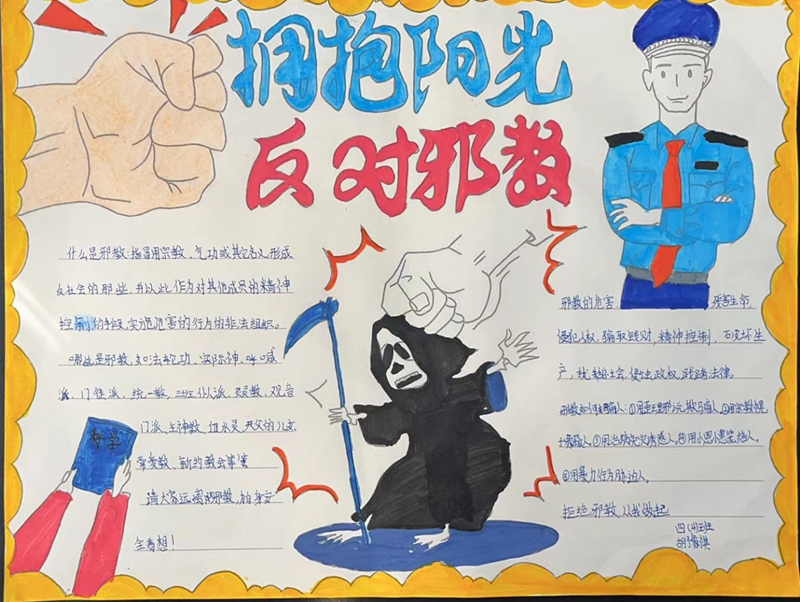 拥抱阳光
反对邪教
什么是邪教:指冒用宗教、气功或其它名义形成
反社会的那些,并以此作为对其他成员的精神
控制的手段,实施危害的行为的非法组织。
哪些是邪教,如法轮功、实际神、呼喊
派、门徒派、统一教、三班仆人派、灵灵教、观音
门派、主神教、血水灵、天父的儿女
新约教会等
请大家远离邪教,为自身安
全着想!
科学
邪教的危害: 残害生命
侵犯人权,骗取钱财,精神控制,破坏生
产,扰乱社会,侵害政权,践踏法律。
邪教如何骗人:①用歪理邪说欺骗人
人,③用治病消灾诱惑人,④用小恩小惠笼络人,
⑤用暴力行为胁迫人。
拒绝邪教,从我做起
四